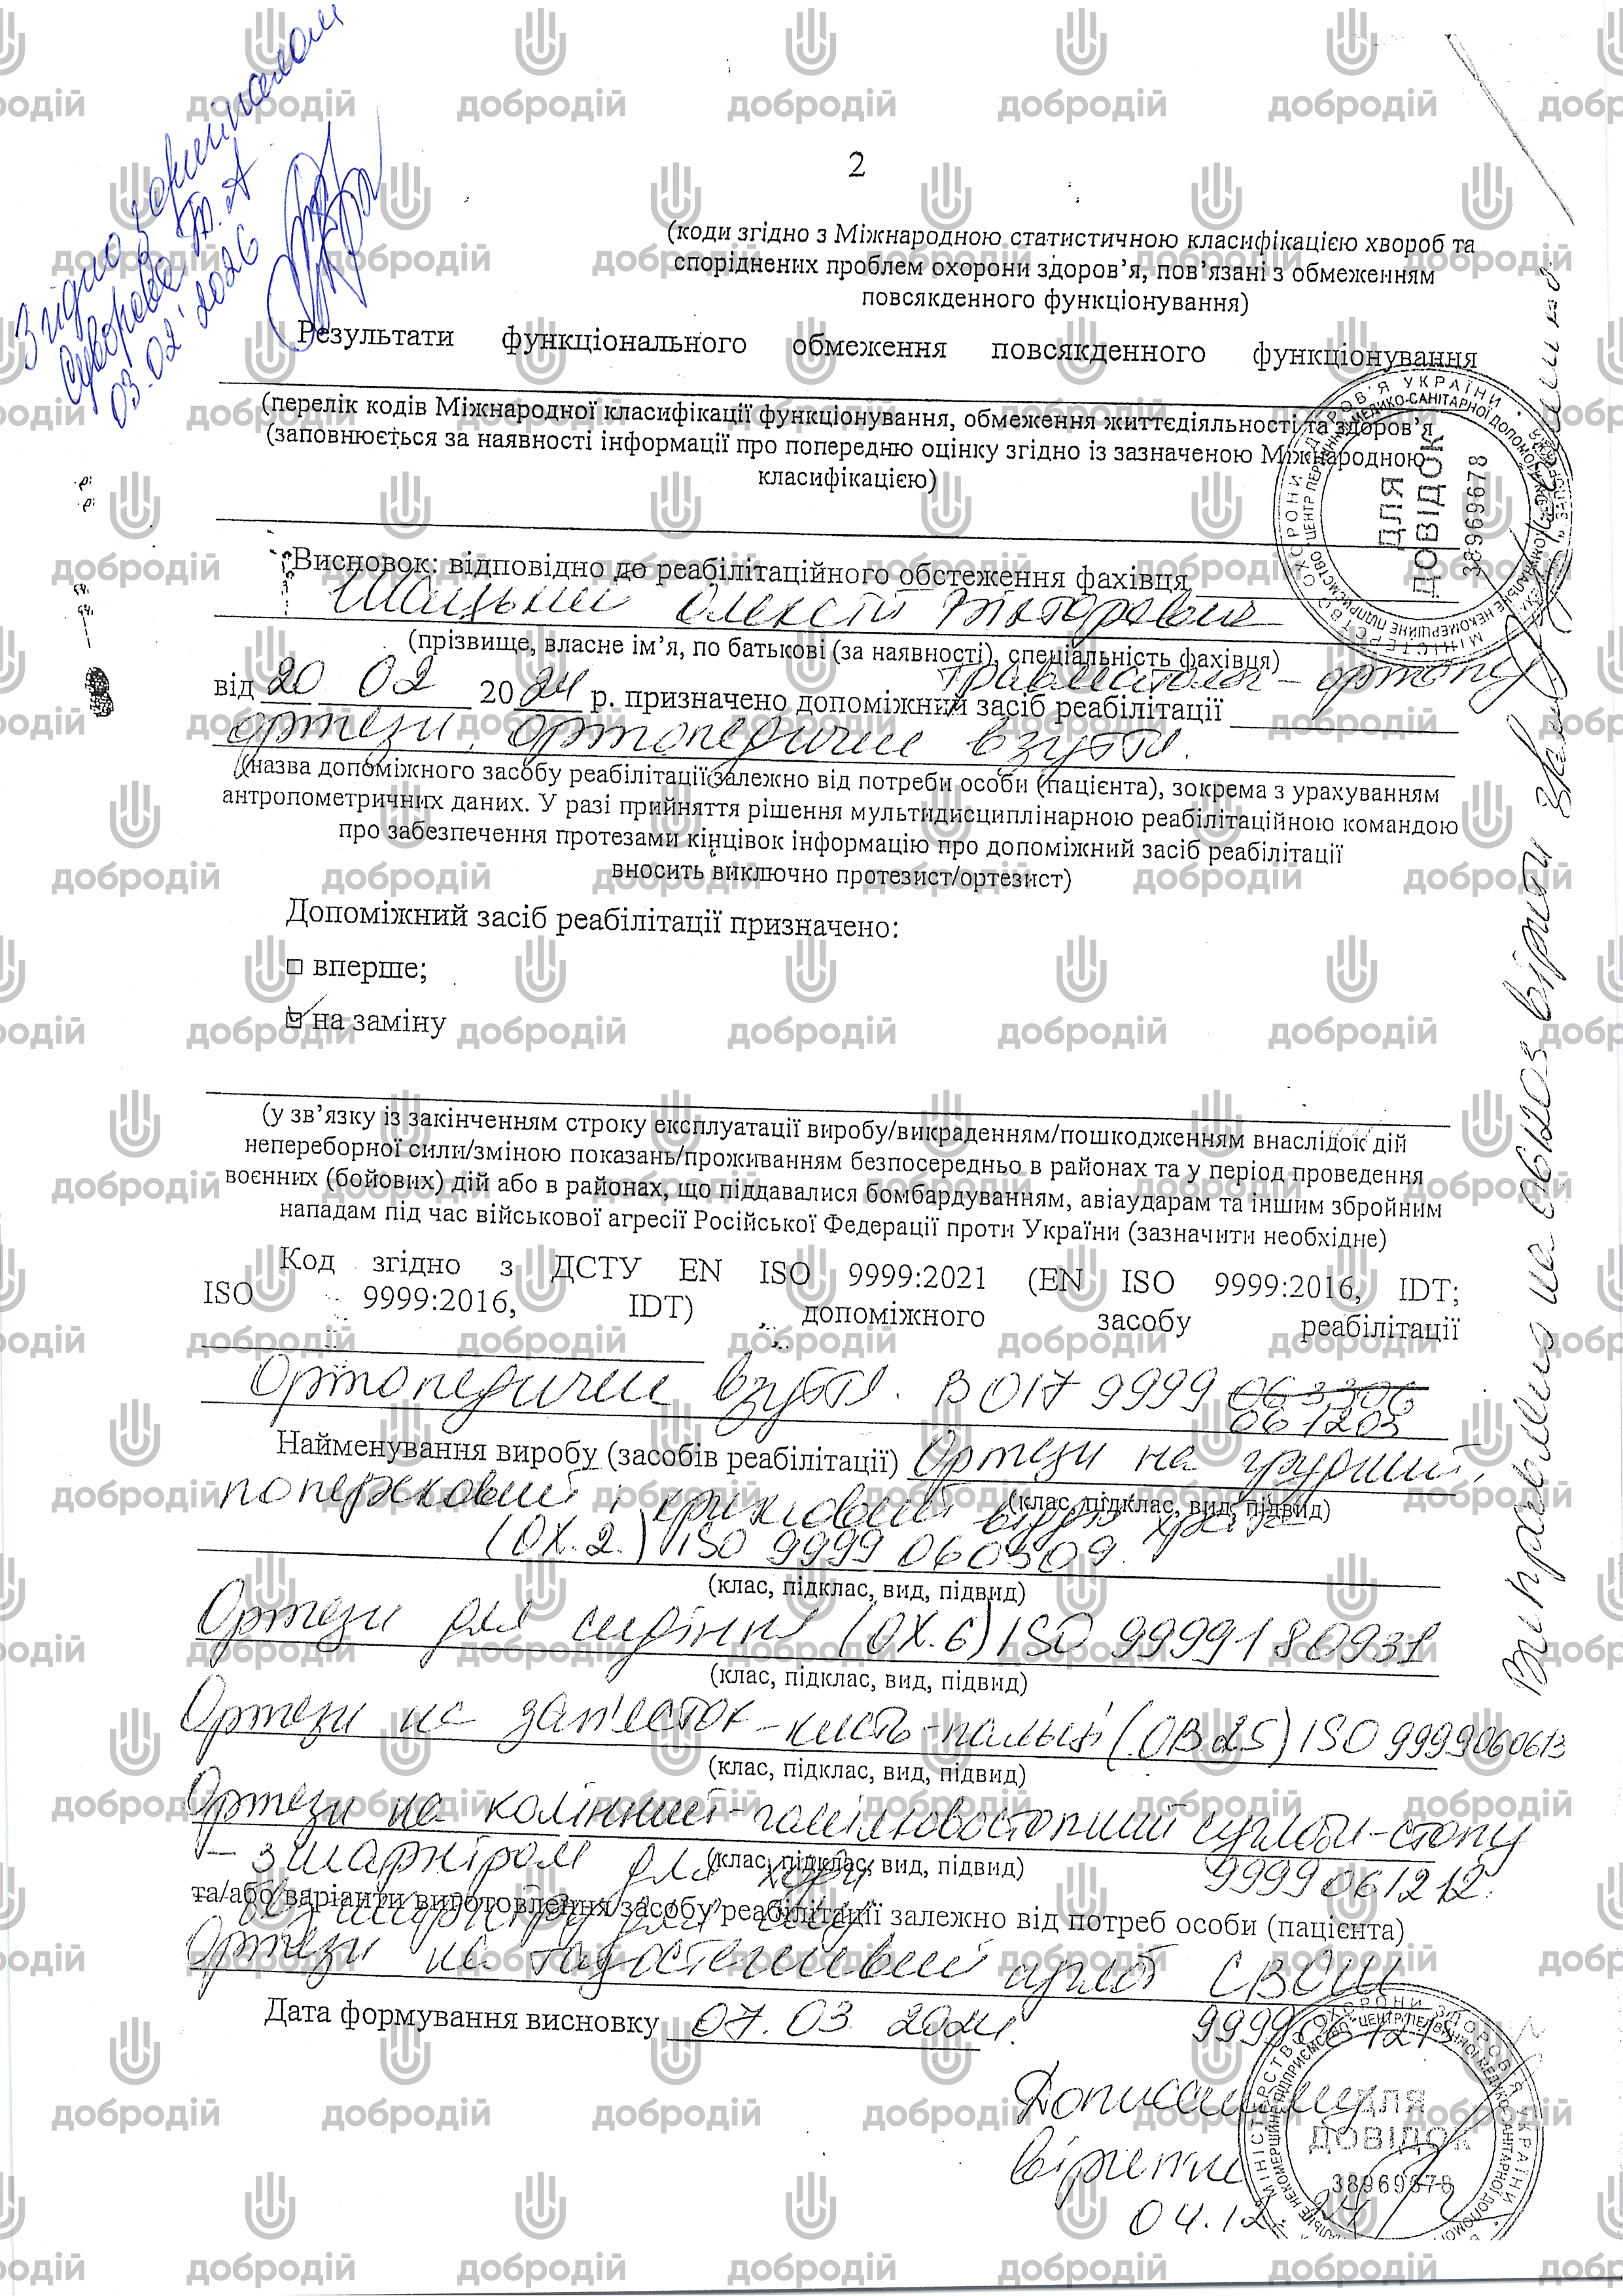 Згідно з оригіналом
Суворова Т. А
03.02.2026
2
(коди згідно з Міжнародною статистичною класифікацією хвороб та
споріднених проблем охорони здоров’я, пов’язані з обмеженням
повсякденного функціонування)
Результати функціонального обмеження повсякденного функціонування
(перелік кодів Міжнародної класифікації функціонування, обмеження життєдіяльності та здоров’я
(заповнюється за наявності інформації про попередню оцінку згідно із зазначеною Міжнародною
класифікацією)
ДЛЯ
ДОВІДОК
38969678
Висновок: відповідно до реабілітаційного обстеження фахівця
Олексій Вікторович
(прізвище, власне ім’я, по батькові (за наявності), спеціальність фахівця)
травматолог - ортопед
від 20 02 2024 р. призначено допоміжний засіб реабілітації
ортези, ортопедичне взуття.
(назва допоміжного засобу реабілітації залежно від потреби особи (пацієнта), зокрема з урахуванням
антропометричних даних. У разі прийняття рішення мультидисциплінарною реабілітаційною командою
про забезпечення протезами кінцівок інформацію про допоміжний засіб реабілітації
вносить виключно протезист/ортезист)
Допоміжний засіб реабілітації призначено:
□ вперше;
☑ на заміну
(у зв’язку із закінченням строку експлуатації виробу/викраденням/пошкодженням внаслідок дій
непереборної сили/зміною показань/проживанням безпосередньо в районах та у період проведення
воєнних (бойових) дій або в районах, що піддавалися бомбардуванням, авіаударам та іншим збройним
нападам під час військової агресії Російської Федерації проти України (зазначити необхідне)
Код згідно з ДСТУ EN ISO 9999:2021 (EN ISO 9999:2016, IDT;
ISO 9999:2016, IDT) допоміжного засобу реабілітації
Ортопедичне взуття. ВО17 9999 063306
061203
Найменування виробу (засобів реабілітації) Ортези на грудний,
поперековий і крижовий відділ
(клас, підклас, вид, підвид)
(ОХ.2.) ISO 9999 060309.
(клас, підклас, вид, підвид)
Ортези для сидіння (ОХ.6) ISO 9999180931
(клас, підклас, вид, підвид)
Ортези на зап'ясток-кисть-пальці (ОВ25) ISO 9999060613
(клас, підклас, вид, підвид)
Ортези на колінний-гомілковостопний суглоби-стопу
- з шарніром для ходи
(клас, підклас, вид, підвид)
9999061212.
та/або варіанти виготовлення засобу реабілітації залежно від потреб особи (пацієнта)
Ортези на тазостегновий суглоб СВОШ
Дата формування висновку 07.03 2024.
9999061215
Дописаному
вірити
04.12.24
ДЛЯ
ДОВІДОК
38969678
Виправлено на 061203 вірити